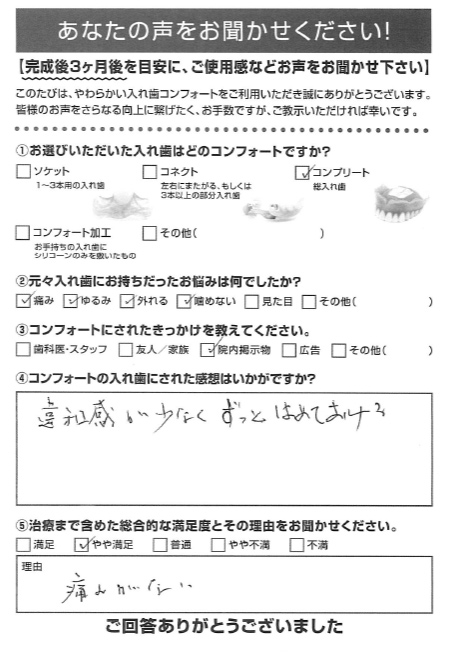 あなたの声をお聞かせください!
【完成後3ヶ月後を目安に、ご使用感などお声をお聞かせ下さい】
このたびは、やわらかい入れ歯コンフォートをご利用いただき誠にありがとうございます。
皆様のお声をさらなる向上に繋げたく、お手数ですが、ご教示いただければ幸いです。
①お選びいただいた入れ歯はどのコンフォートですか?
□ソケット □コネクト ☑コンプリート
1〜3本用の入れ歯 左右にまたがる、もしくは 総入れ歯
3本以上の部分入れ歯
□コンフォート加工 □その他( )
お手持ちの入れ歯に
シリコーンのみを敷いたもの
②元々入れ歯にお持ちだったお悩みは何でしたか?
☑痛み ☑ゆるみ ☑外れる ☑噛めない □見た目 □その他( )
③コンフォートにされたきっかけを教えてください。
□歯科医・スタッフ □友人/家族 ☑院内掲示物 □広告 □その他( )
④コンフォートの入れ歯にされた感想はいかがですか?
違和感が少なくずっとはめておける
⑤治療まで含めた総合的な満足度とその理由をお聞かせください。
□満足 ☑やや満足 □普通 □やや不満 □不満
理由
痛みがない
ご回答ありがとうございました